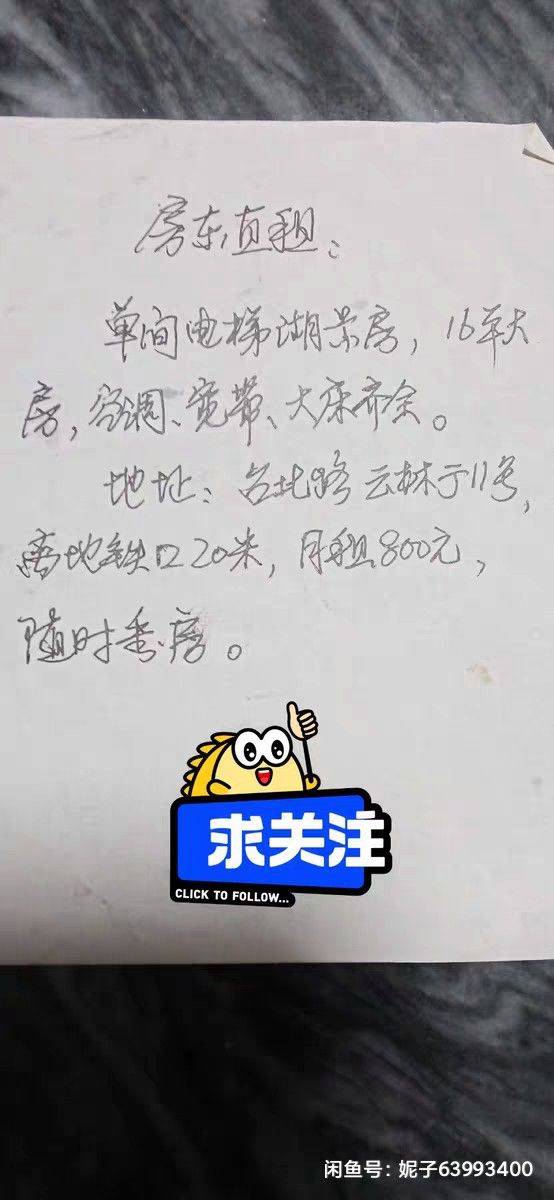 房东直租：
单间电梯湖景房，16平大
房，空调、宽带、大床齐全。
地址：台北路云林于11号，
离地铁口20米，月租800元，
随时看房。
求关注
CLICK TO FOLLOW...
闲鱼号：妮子63993400